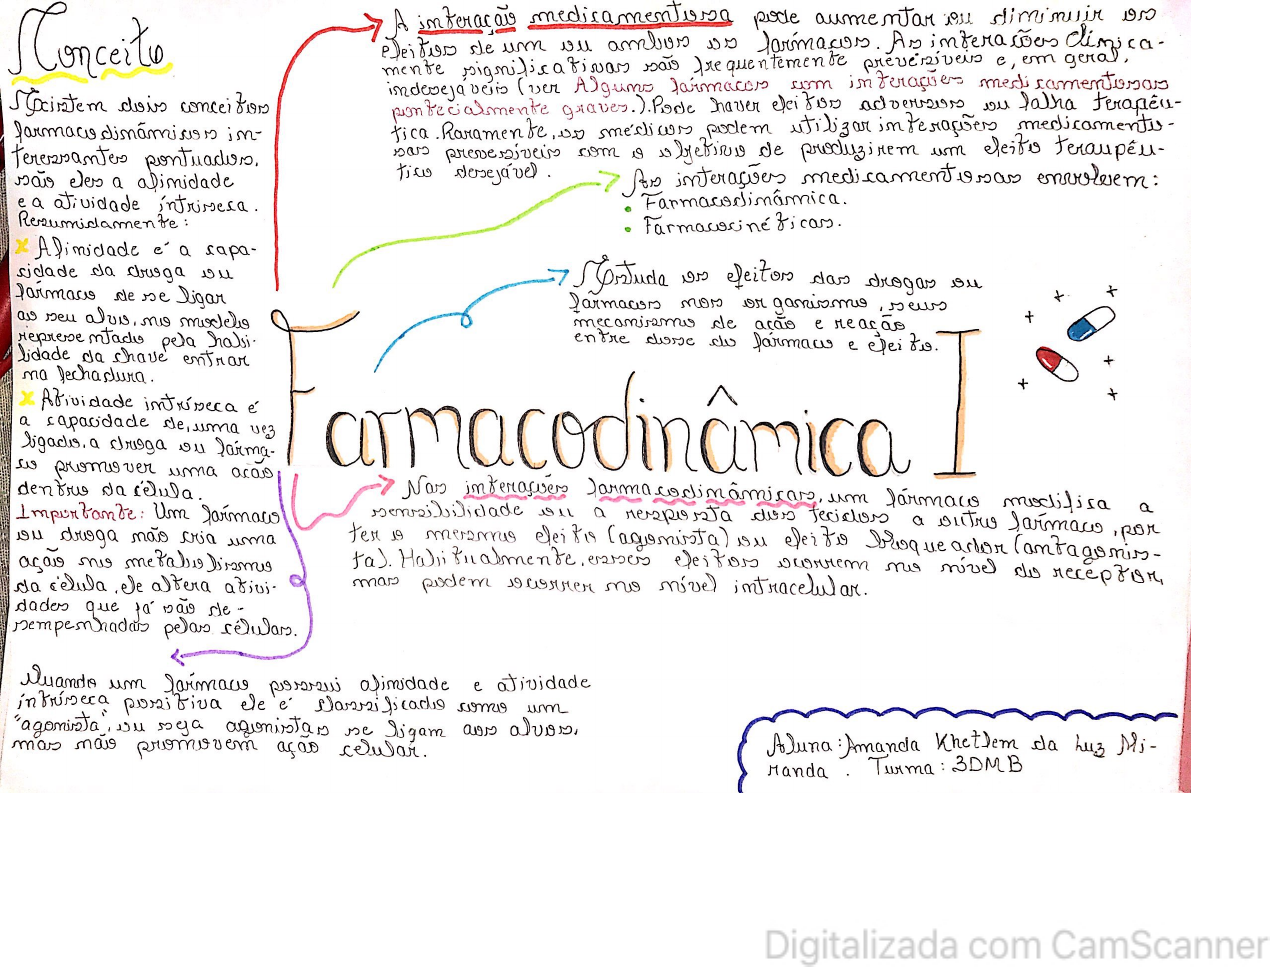 Conceito
Existem dois conceitos
farmacodinâmicos in-
teressantes pontuados,
são eles a afinidade
e a atividade intríseca.
Resumidamente:
x Afinidade é a capa-
cidade da droga ou
fármaco de se ligar
ao seu alvo, no modelo
representado pela habi-
lidade da chave entrar
na fechadura.
x Atividade intríseca é
a capacidade de, uma vez
ligado, a droga ou fárma-
co promover uma ação
dentro da célula.
Importante: Um fármaco
ou droga não cria uma
ação no metabolismo
da célula, ele altera ativi-
dades que já são de-
sempenhadas pelas células.
Quando um fármaco possui afinidade e atividade
intríseca positiva ele é classificado como um
"agonista", ou seja agonistas se ligam aos alvos,
mas não promovem ação celular.
A interação medicamentosa pode aumentar ou diminuir os
efeitos de um ou ambos os fármacos. As interações clinica-
mente significativas são frequentemente previsíveis e, em geral,
indesejáveis (ver Alguns fármacos com interações medicamentosas
pontecialmente graves.). Pode haver efeitos adversos ou falha terapêu-
tica. Raramente, os médicos podem utilizar interações medicamento-
sas previsíveis com o objetivo de produzirem um efeito teraupêu-
tico desejável.
As interações medicamentosas envolvem:
• Farmacodinâmica.
• Farmacocinéticas.
Estuda os efeitos das drogas ou
fármacos nos organismo, seus
mecanismo de ação e reação
entre dose do fármaco e efeito.
Farmacodinâmica I
Nas interações farmacodinâmicas, um fármaco modifica a
sensibilidade ou a resposta dos tecidos a outro fármaco, por
ter o mesmo efeito (agonista) ou efeito bloqueador (antagonis-
ta). Habitualmente, esses efeitos ocorrem no nível do receptor,
mas podem ocorrer no nível intracelular.
Aluna: Amanda Khetlem da Luz Mi-
randa. Turma: 3DMB
Digitalizada com CamScanner